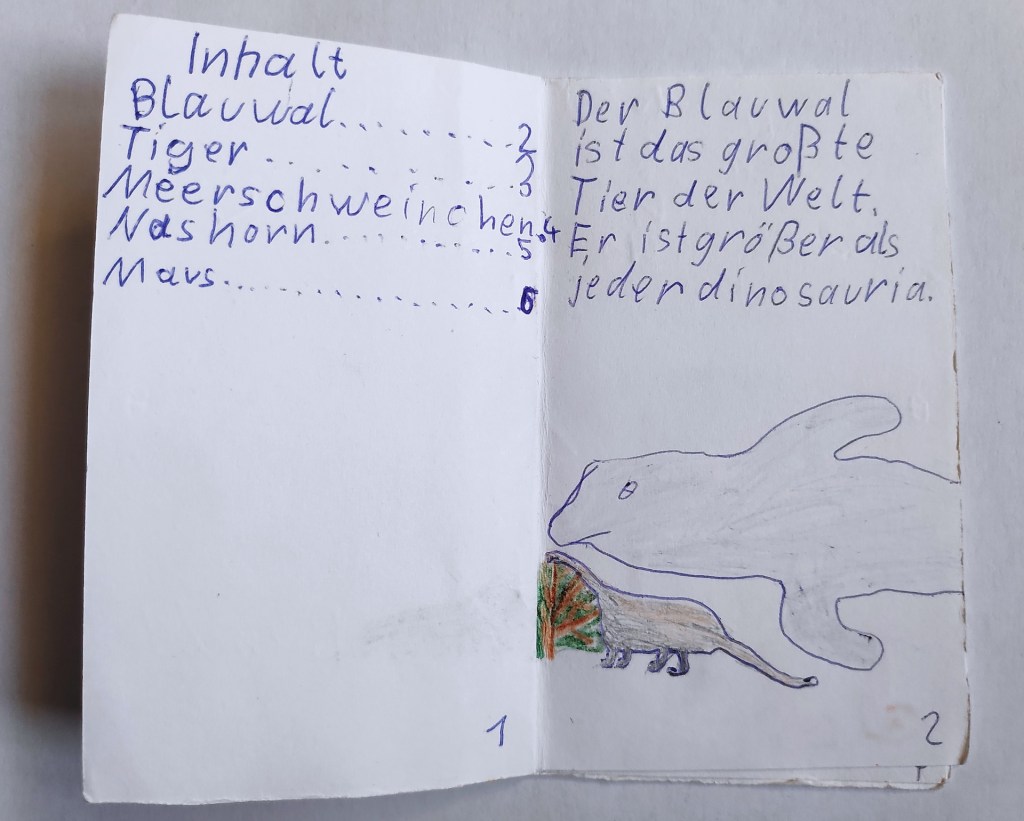 Inhalt
Blauwal..........2
Tiger..........3
Meerschweinchen.4
Nashorn..........5
Maus..........6
1
Der Blauwal
ist das großëte
Tier der Welt.
Er ist größer als
jeder dinosauria.
2